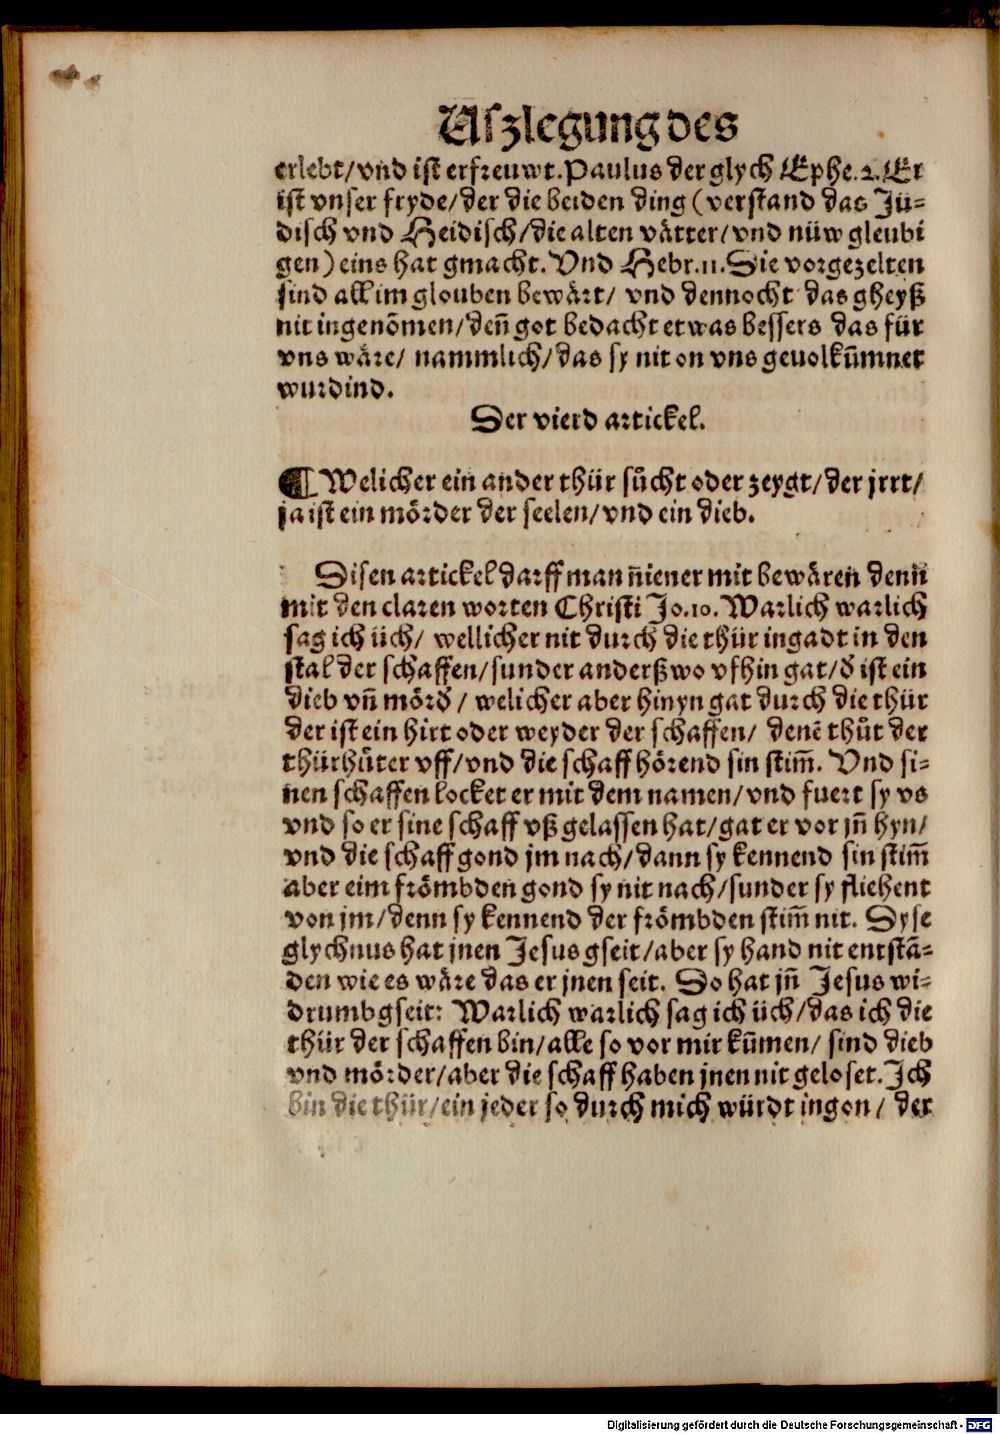 Uſzlegung des
erlebt/ vnd iſt erfreuwt. Paulus der glych Ephe. 2. Er
iſt vnſer fryde/ der die beiden ding (verſtand das Jü-
diſch vnd Heidiſch/ die alten vätter/ vnd nüw gleubi
gen) eins hat gmacht. Vnd Hebr. 11. Die vorgezelten
ſind all im glouben bewärt/ vnd dennocht das gheyß
nit ingenõmen/ deñ got bedacht etwas beſſers das für
vns wäre/ nammlich/ das ſy nit on vns geuolkũmnet
wurdind.
Der vierd artickel.
¶ Welicher ein ander thür ſůcht oder zeygt/ der jrrt/
ja iſt ein mörder der ſeelen/ vnd ein dieb.
Diſen artickel darff man niener mit bewären denn
mit den claren worten Chriſti Jo. 10. Warlich warlich
ſag ich üch/ wellicher nit durch die thür ingadt in den
ſtal der ſchaffen/ ſunder anderßwo vfhin gat/ d̓ iſt ein
dieb vñ mörd̓ / welicher aber hinyn gat durch die thür
der iſt ein hirt oder weyder der ſchaffen/ denẽ thůt der
thürhůter vff/ vnd die ſchaff hörend ſin ſtim̃. Vnd ſi-
nen ſchaffen locket er mit dem namen/ vnd fuert ſy vs
vnd ſo er ſine ſchaff vß gelaſſen hat/ gat er vor jñ hyn/
vnd die ſchaff gond jm nach/ dann ſy kennend ſin ſtim̃
aber eim frömbden gond ſy nit nach/ ſunder ſy fliehent
von jm/ denn ſy kennend der frömbden ſtim̃ nit. Dyſe
glychnus hat jnen Jeſus gſeit/ aber ſy hand nit entſtã-
den wie es wäre das er jnen ſeit. Do hat jñ Jeſus wi-
drumb gſeit: Warlich warlich ſag ich üch/ das ich die
thür der ſchaffen bin/ alle ſo vor mir kũmen/ ſind dieb
vnd mörder/ aber die ſchaff haben jnen nit geloſet. Ich
bin die thür/ ein jeder ſo durch mich würdt ingon/ der
Digitalisierung gefördert durch die Deutsche Forschungsgemeinschaft - DFG